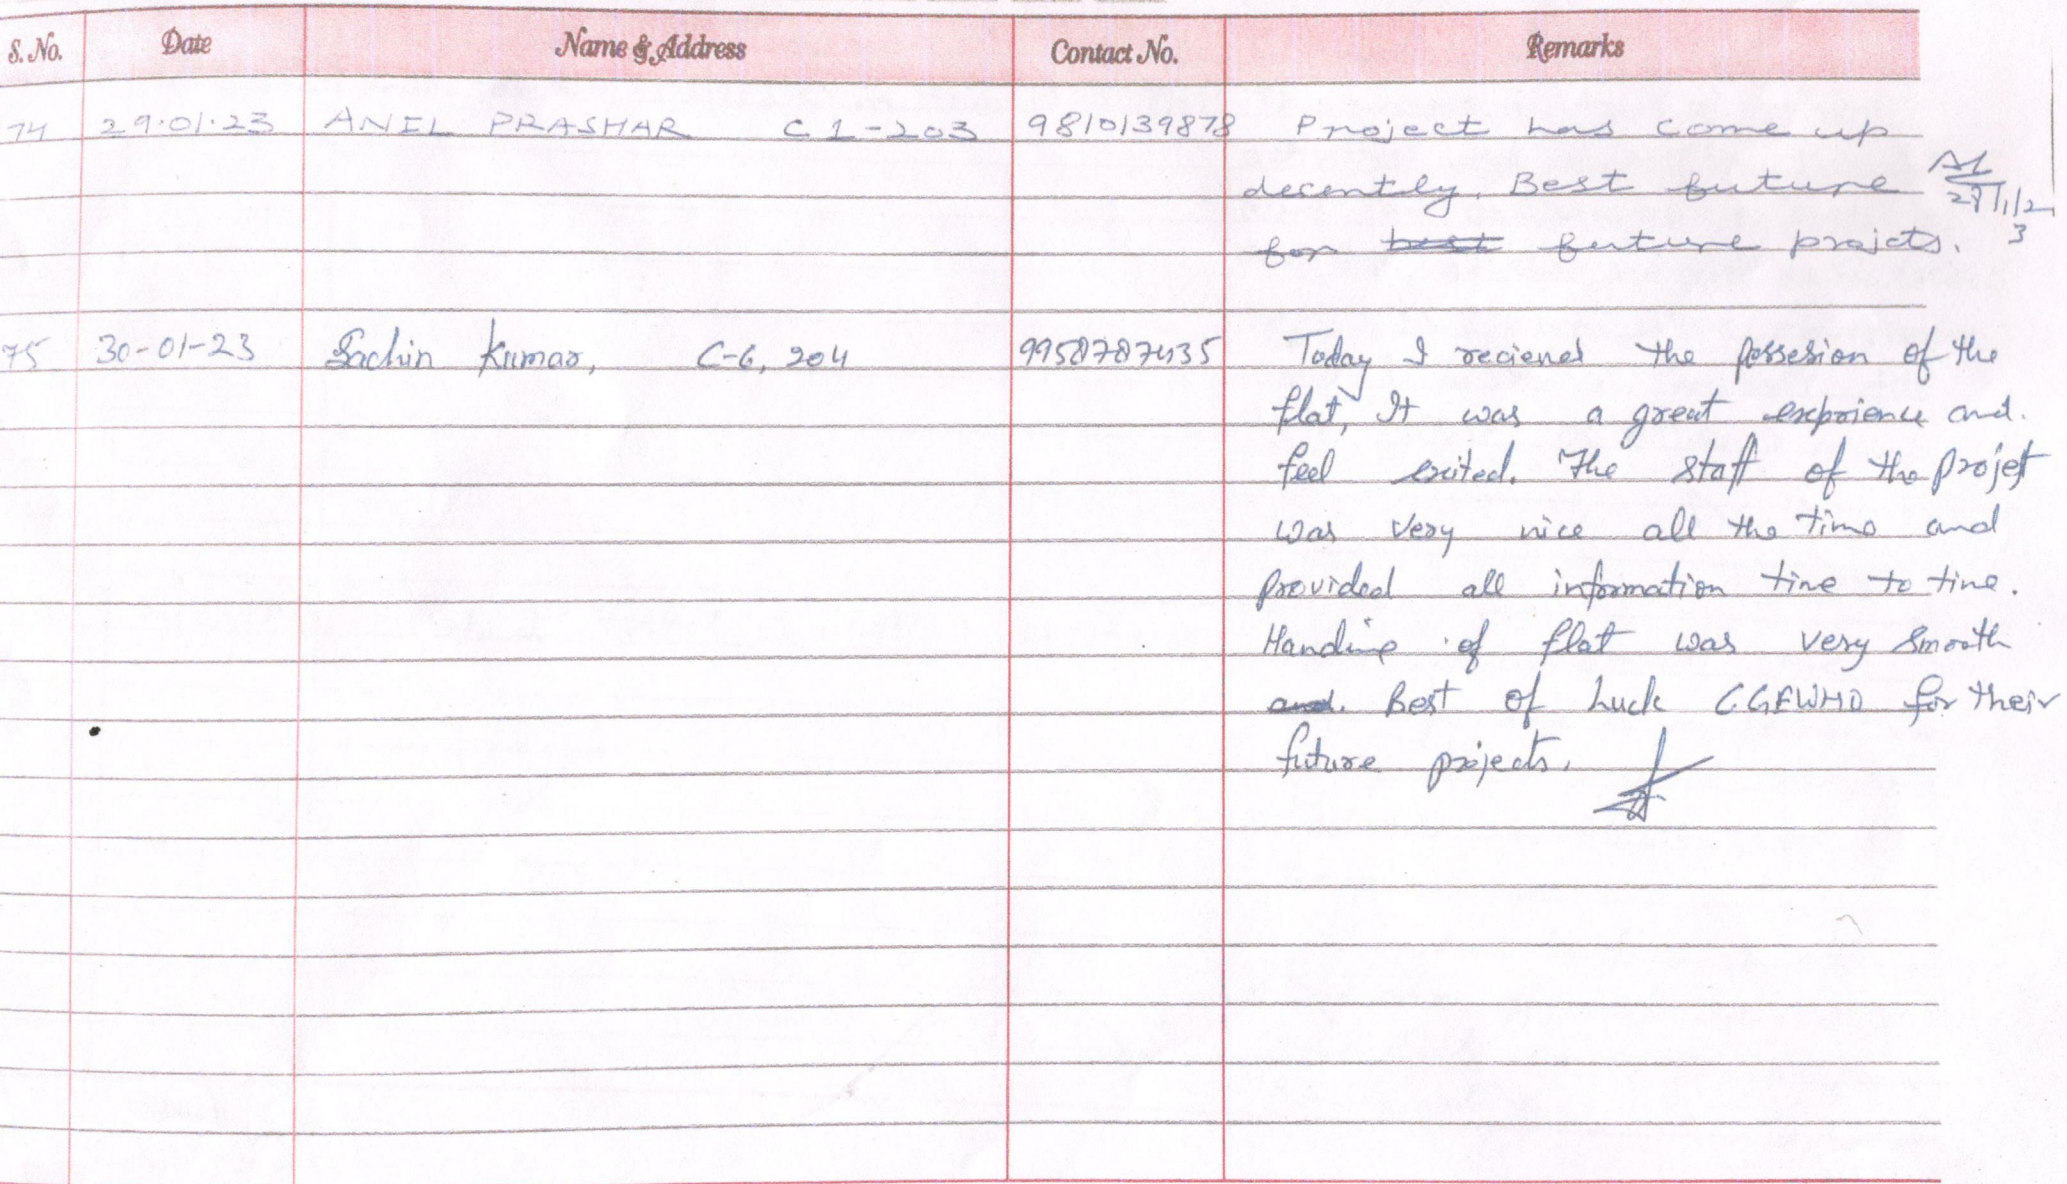 S. No. Date Name & Address Contact No. Remarks
74 29.01.23 ANIL PRASHAR C 1-203 9810139878 Project has come up
decently. Best future
for best future projcts.
75 30-01-23 Sachin Kumar, C-6, 204 9958787435 Today I recieved the possesion of the
flat, It was a great exprience and.
feel exited. The staff of the projet
was very nice all the time and
provided all information time to time.
Handing of flat was very smooth
and. Best of Luck CGEWHO for their
future projects.